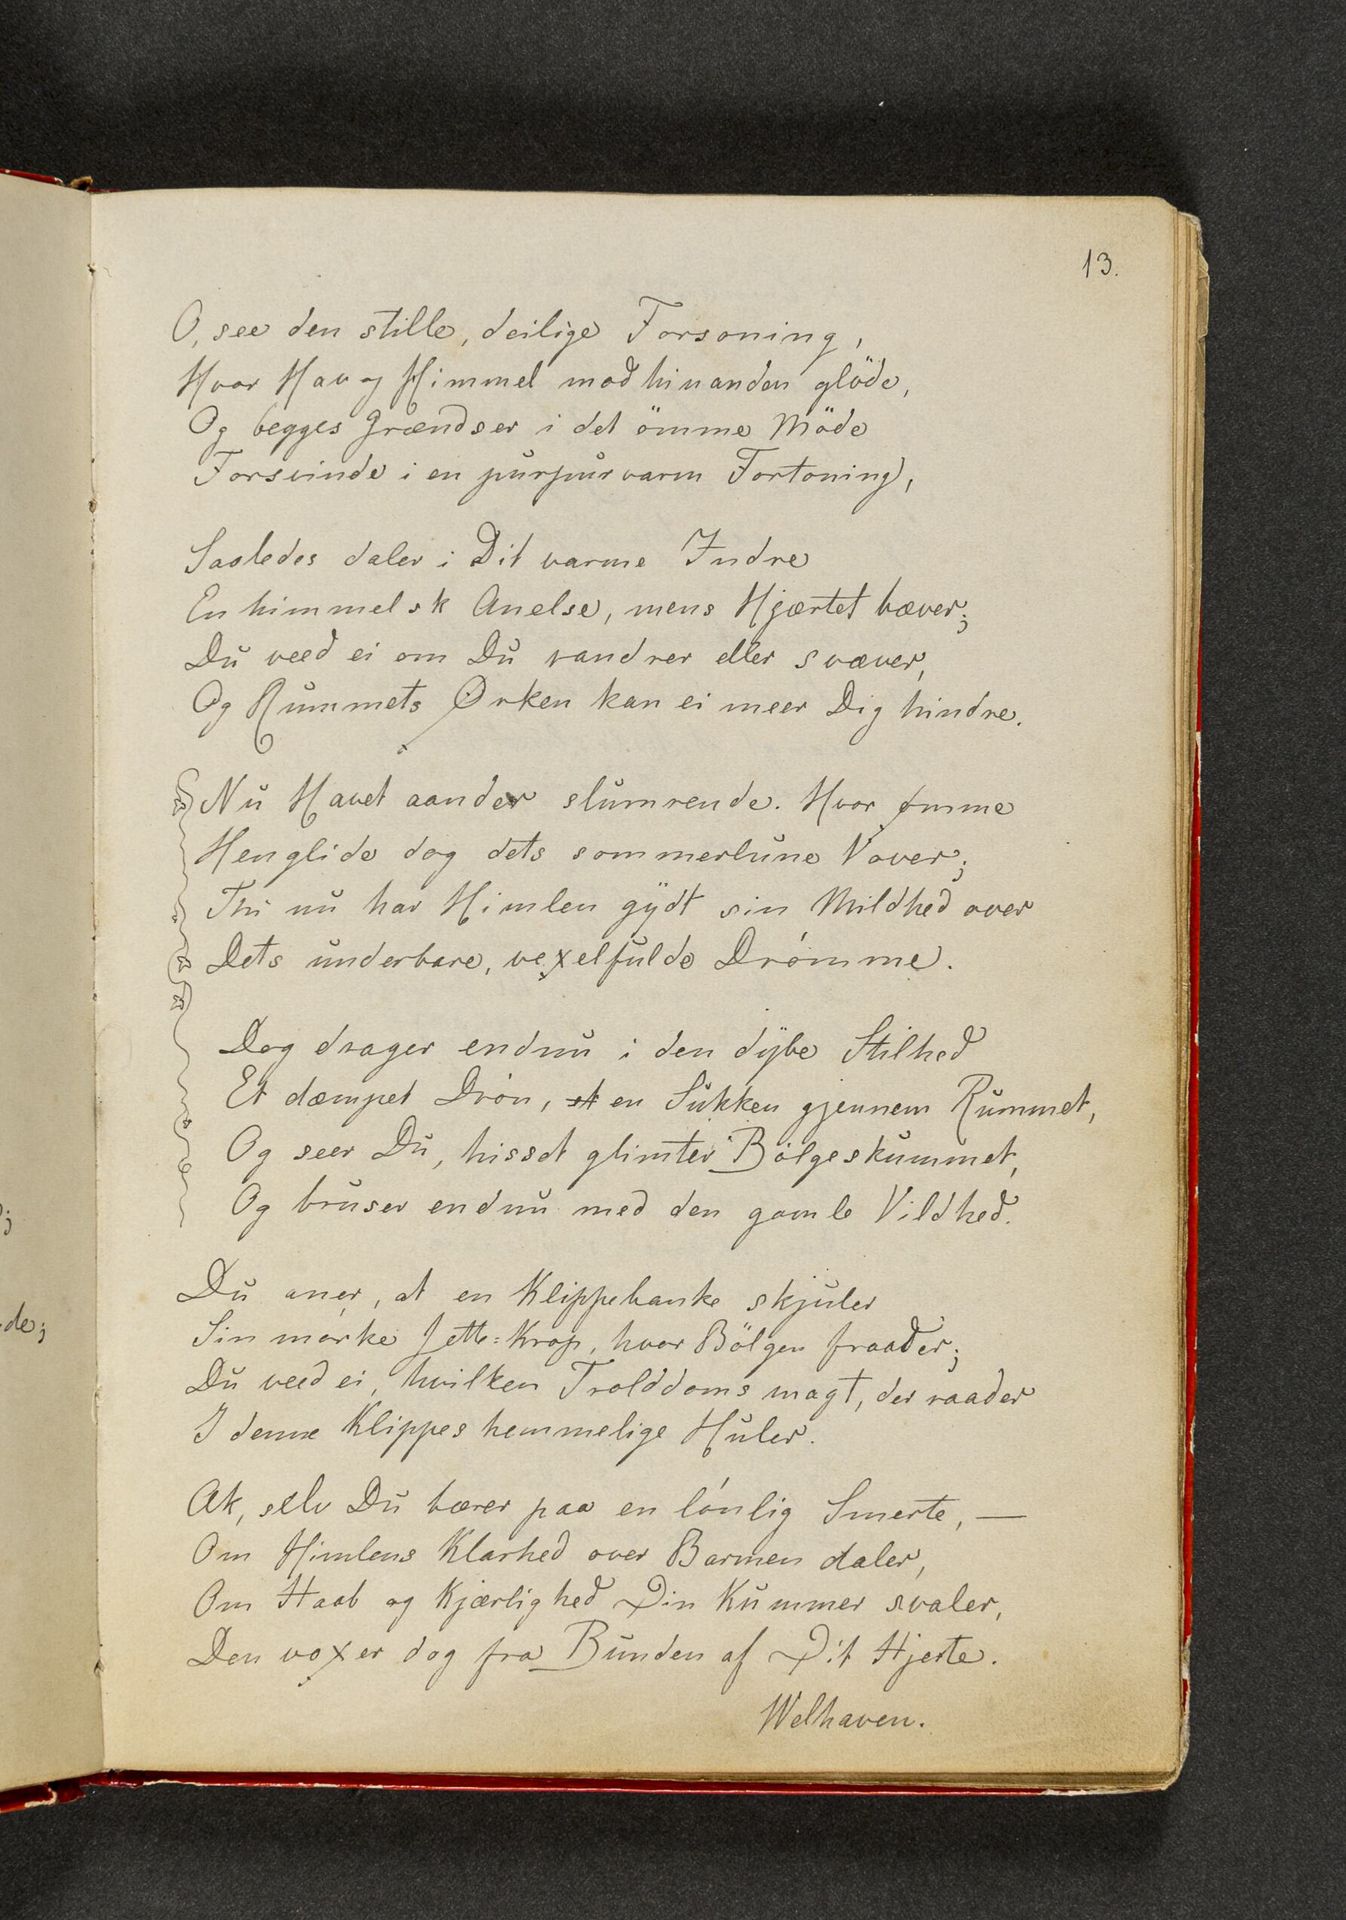 13.
O, see den stille, deilige Forsoning,
Hvor Hav og Himmel mod hinanden glöde,
Og begges Grændser i det ömme Möde
Forsvinde i en purpurvarm Fortoning,
Saaledes daler i Dit varme Indre
En himmelsk Anelse, mens Hjærtet bæver;
Du veed ei om Du vandrer eller svæver,
Og Rummets Ørken kan ei meer Dig hindre.
Nu Havet aander slumrende. Hvor ømme
Henglide dog dets sommerlune Vover;
Thi nu har Himlen gydt sin Mildhed over
Dets underbare, vexelfulde Drómme.
Dog drager endnu i den dybe Stilhed
Et dæmpet Drón, et en Sukken gjennem Rummet,
Og seer Du, hisset glimter Bólgeskummet,
Og bruser endnu med den gamle Vildhed.
Du aner, at en Klippebanke skjuler
Sin mórke Jette=Krop, hvor Bölgen fraader;
Du veed ei, hvilken Trolddoms magt, der raader
I denne Klippes hemmelige Huler.
Ak, selv Du bærer paa en lónlig Smerte, —
Om Himlens Klarhed over Barmen daler,
Om Haab og Kjærlighed Din Kummer svaler,
Den voxer dog fra Bunden af Dit Hjerte.
Welhaven.
;
de;